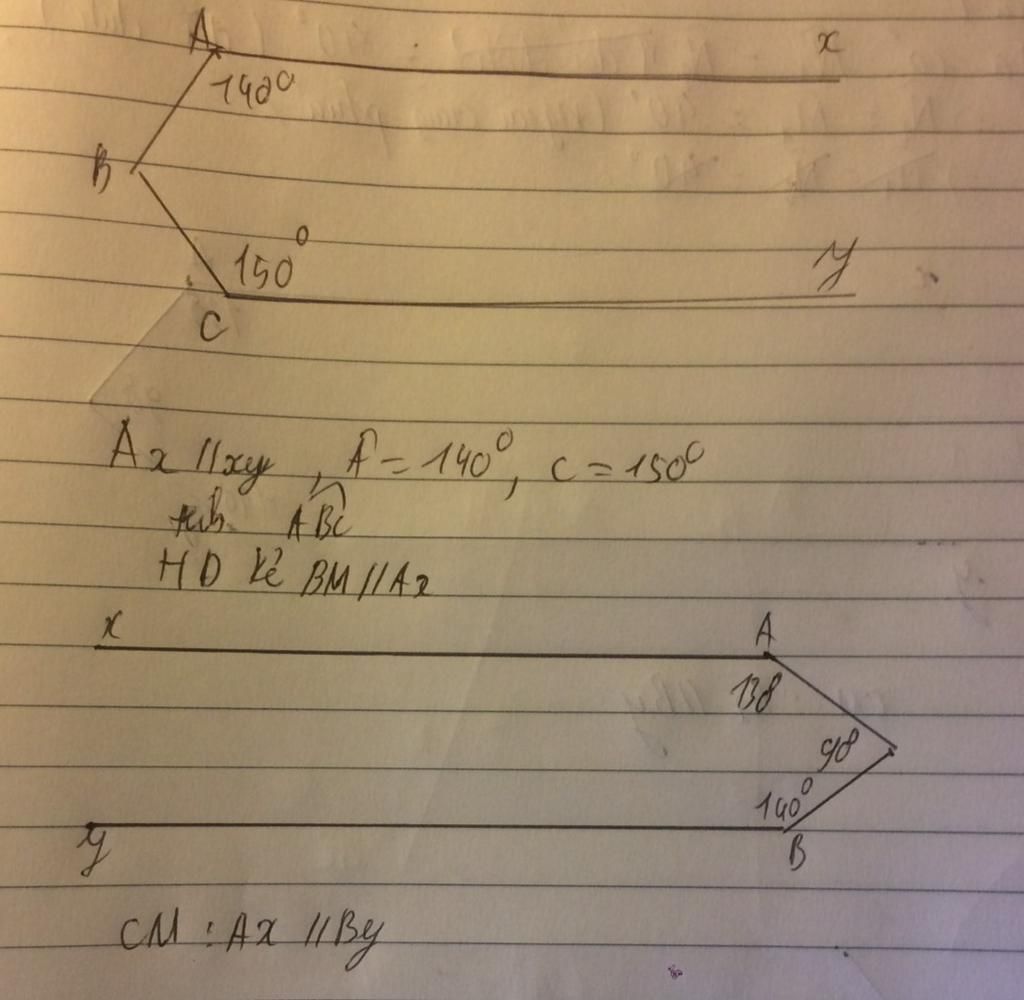 A x
140⁰
B
150⁰ y
C
Ax // xy , Â = 140⁰ , C = 150⁰
ABC
HD kẻ BM // Ax
x A
138
98
140⁰
y B
CM : Ax // By